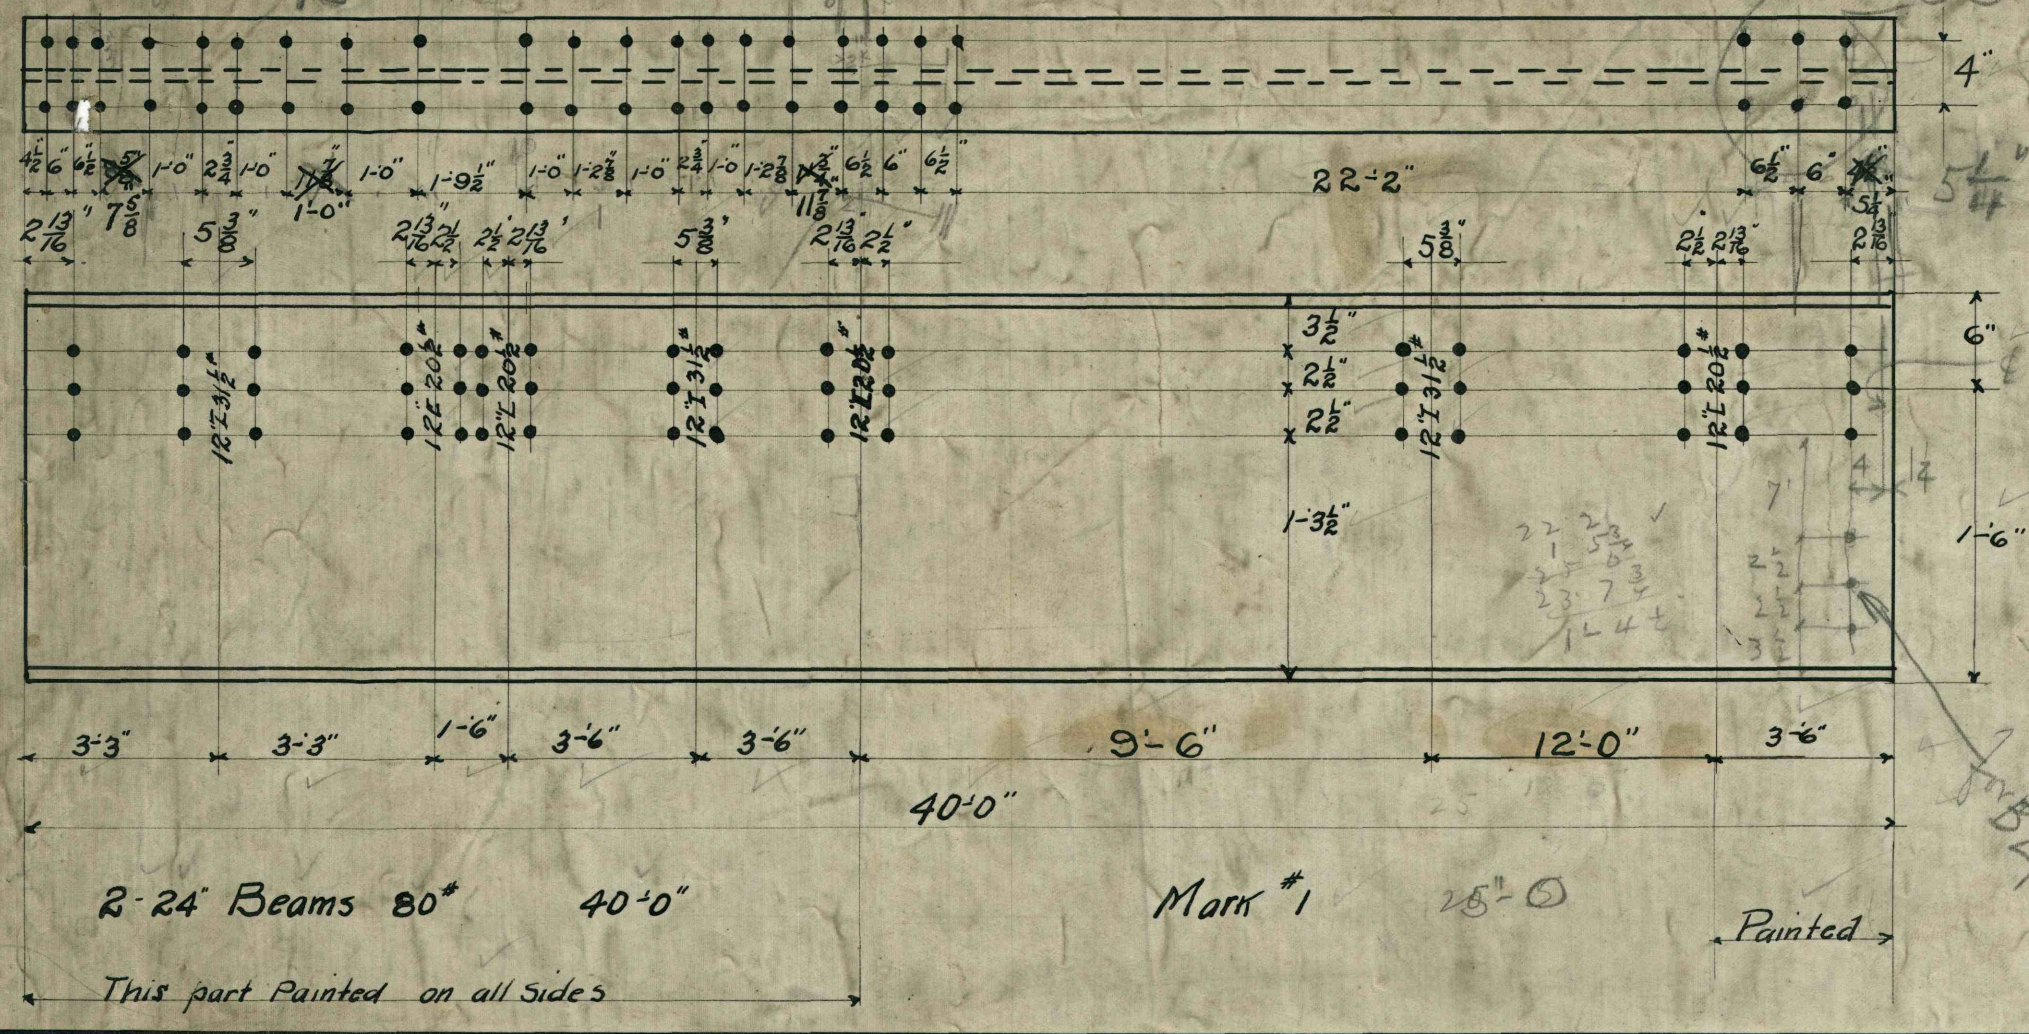 4"
4½" 6" 6½" 1'-0" 2¾" 1'-0" 1'-0" 1'-9½" 1'-0" 1'-2⅞" 1'-0" 2¾" 1'-0" 1'-2⅞" 6½" 6" 6½" 22'-2" 6½" 6"
7⅝" 1'-0" 11⅞" 5¼" 5¼"
2 13/16" 5⅜" 2 13/16" 2½" 2½" 2 13/16" 5⅜" 2 13/16" 2½" 5⅜" 2½" 2 13/16" 2 13/16"
3½" 6"
12" I 31½# 12" I 20½# 12" I 20½# 12" I 31½# 12" I 20½# 12" I 31½# 12" I 20½#
2½"
2½"
4
7"
1'-3½" 1'-6"
2½
2½
3½
3'-3" 3'-3" 1'-6" 3'-6" 3'-6" 9'-6" 12'-0" 3'-6"
40'-0"
2-24" Beams 80# 40'-0" Mark #1
Painted
This part Painted on all Sides